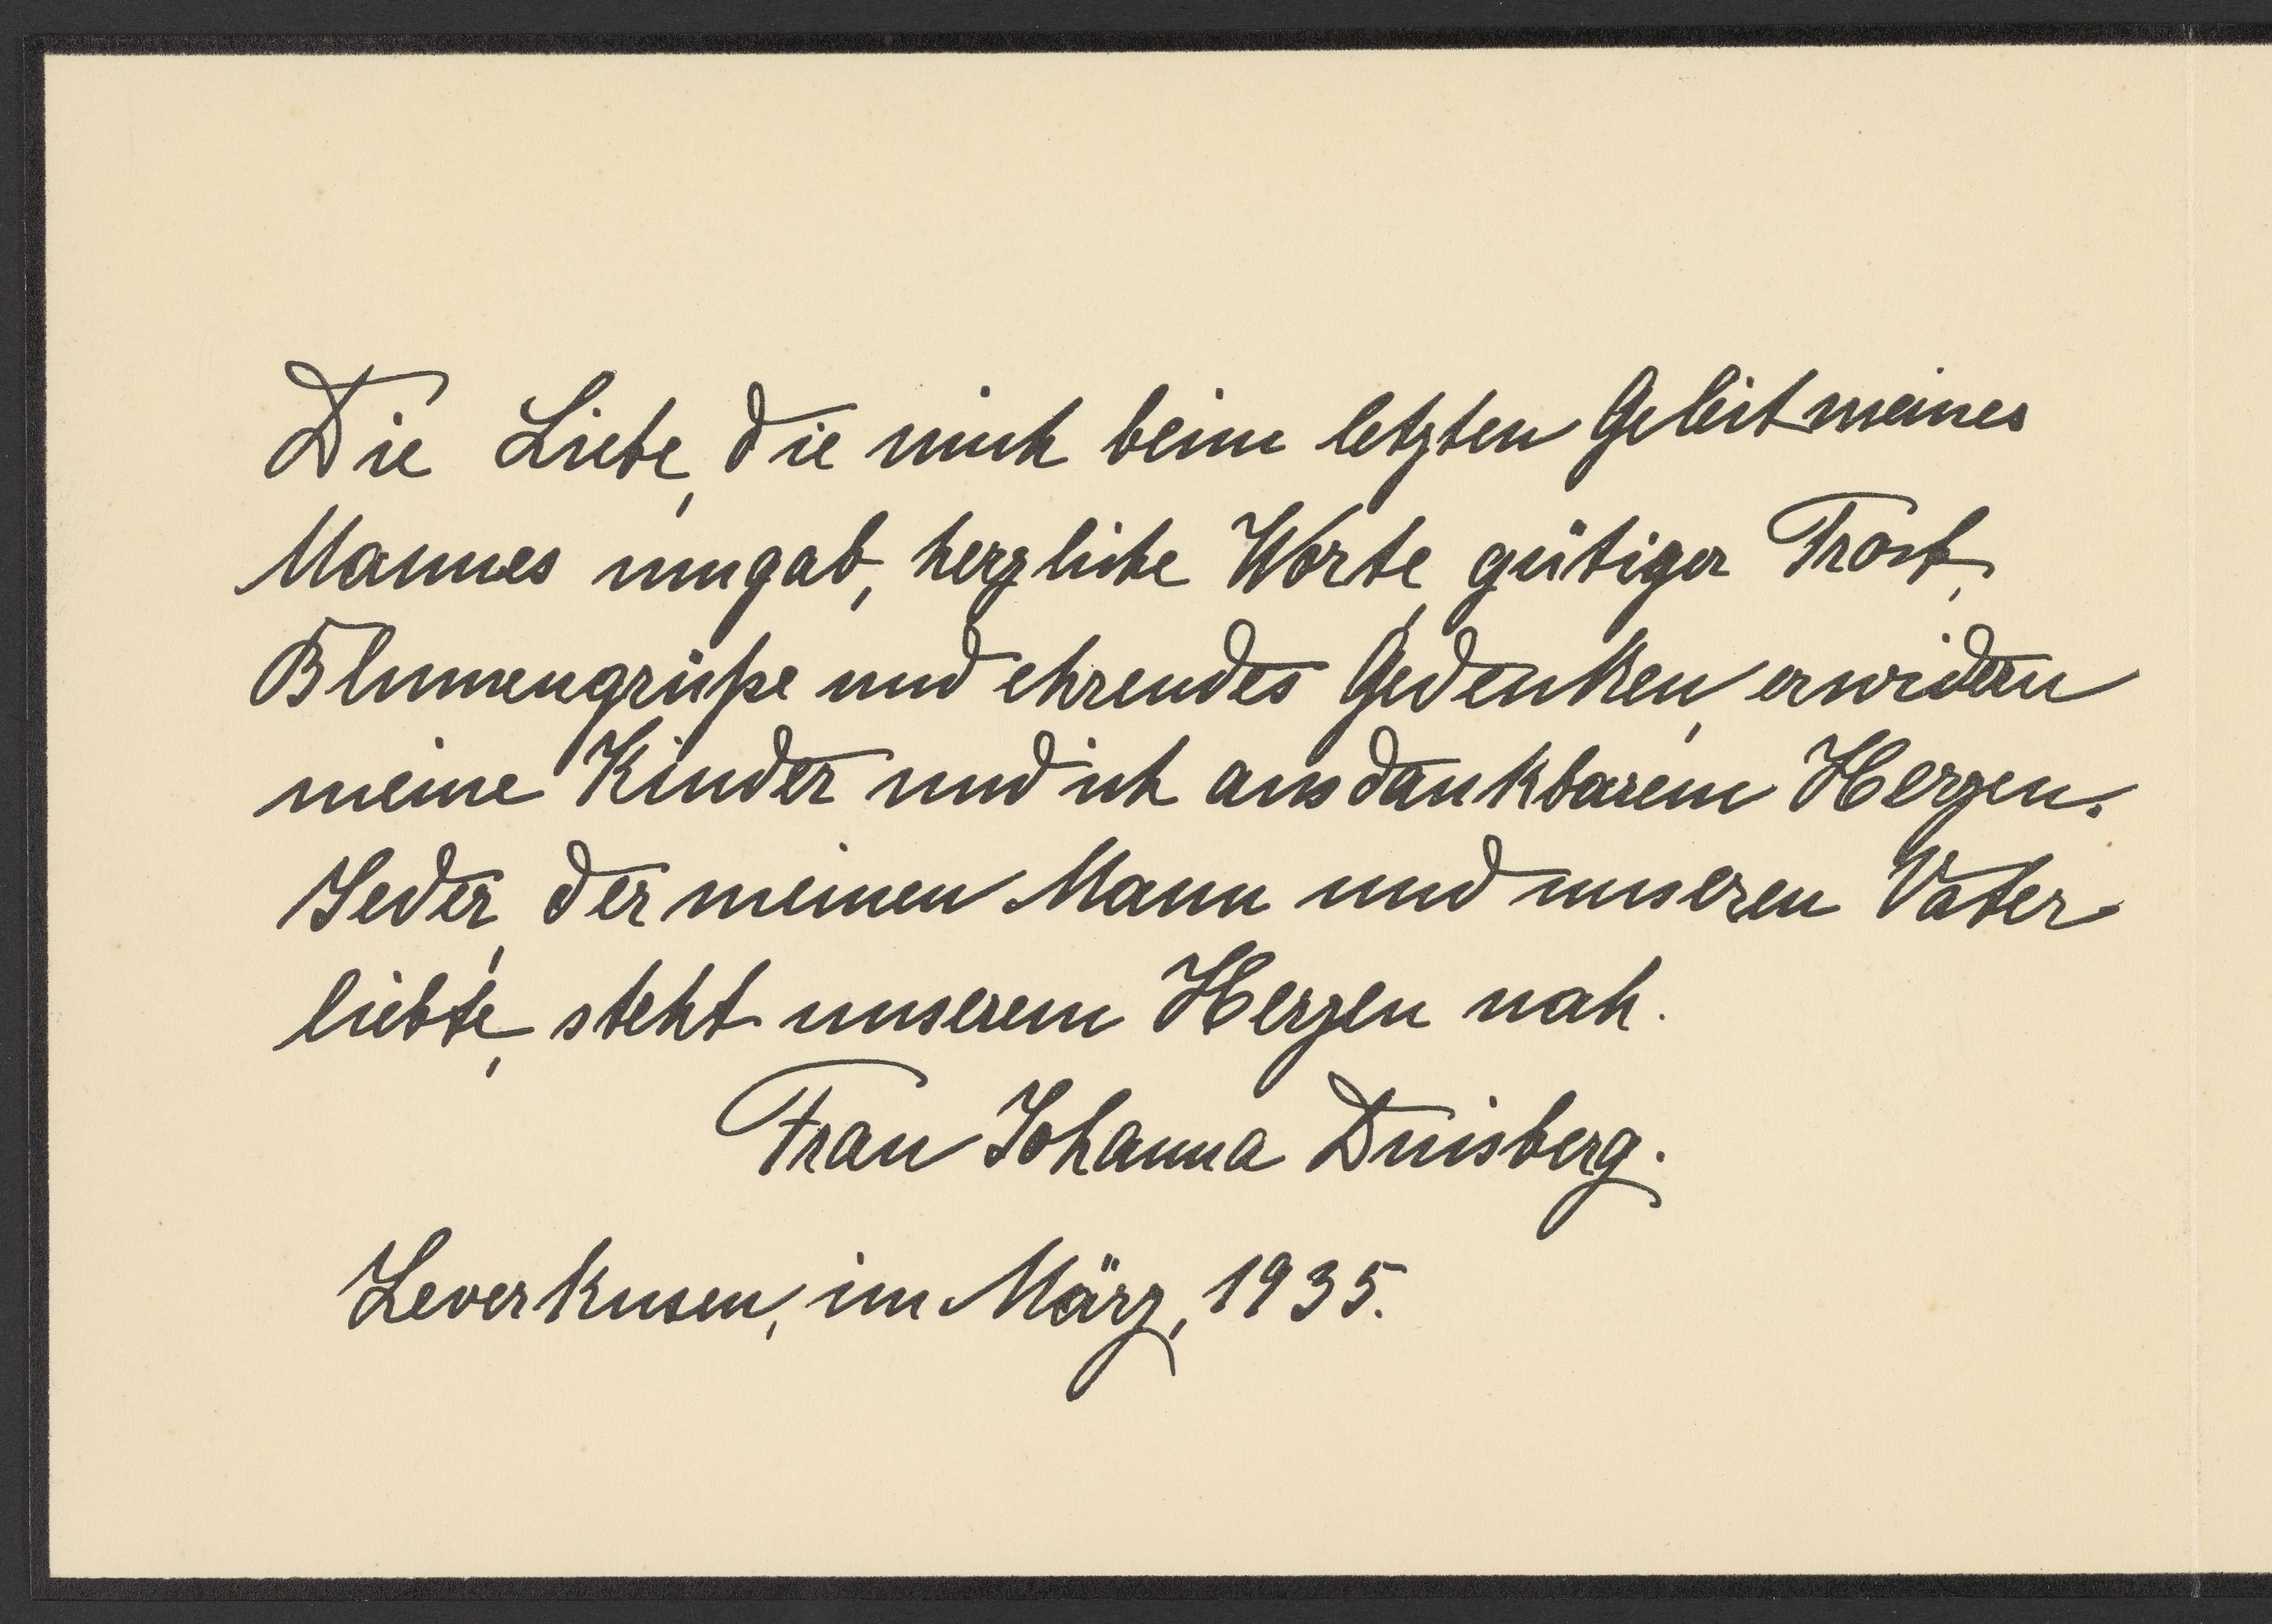 Die Liebe, die mich beim letzten Geleit meines
Mannes umgab, herzliche Worte, gütiger Trost,
Blumengrüße und ehrendes Gedenken, erwidern
meine Kinder und ich aus dankbarem Herzen.
Jeder, der meinen Mann und unseren Vater
liebte, steht unserem Herzen nah.
Frau Johanna Duisberg.
Leverkusen, im März, 1935.